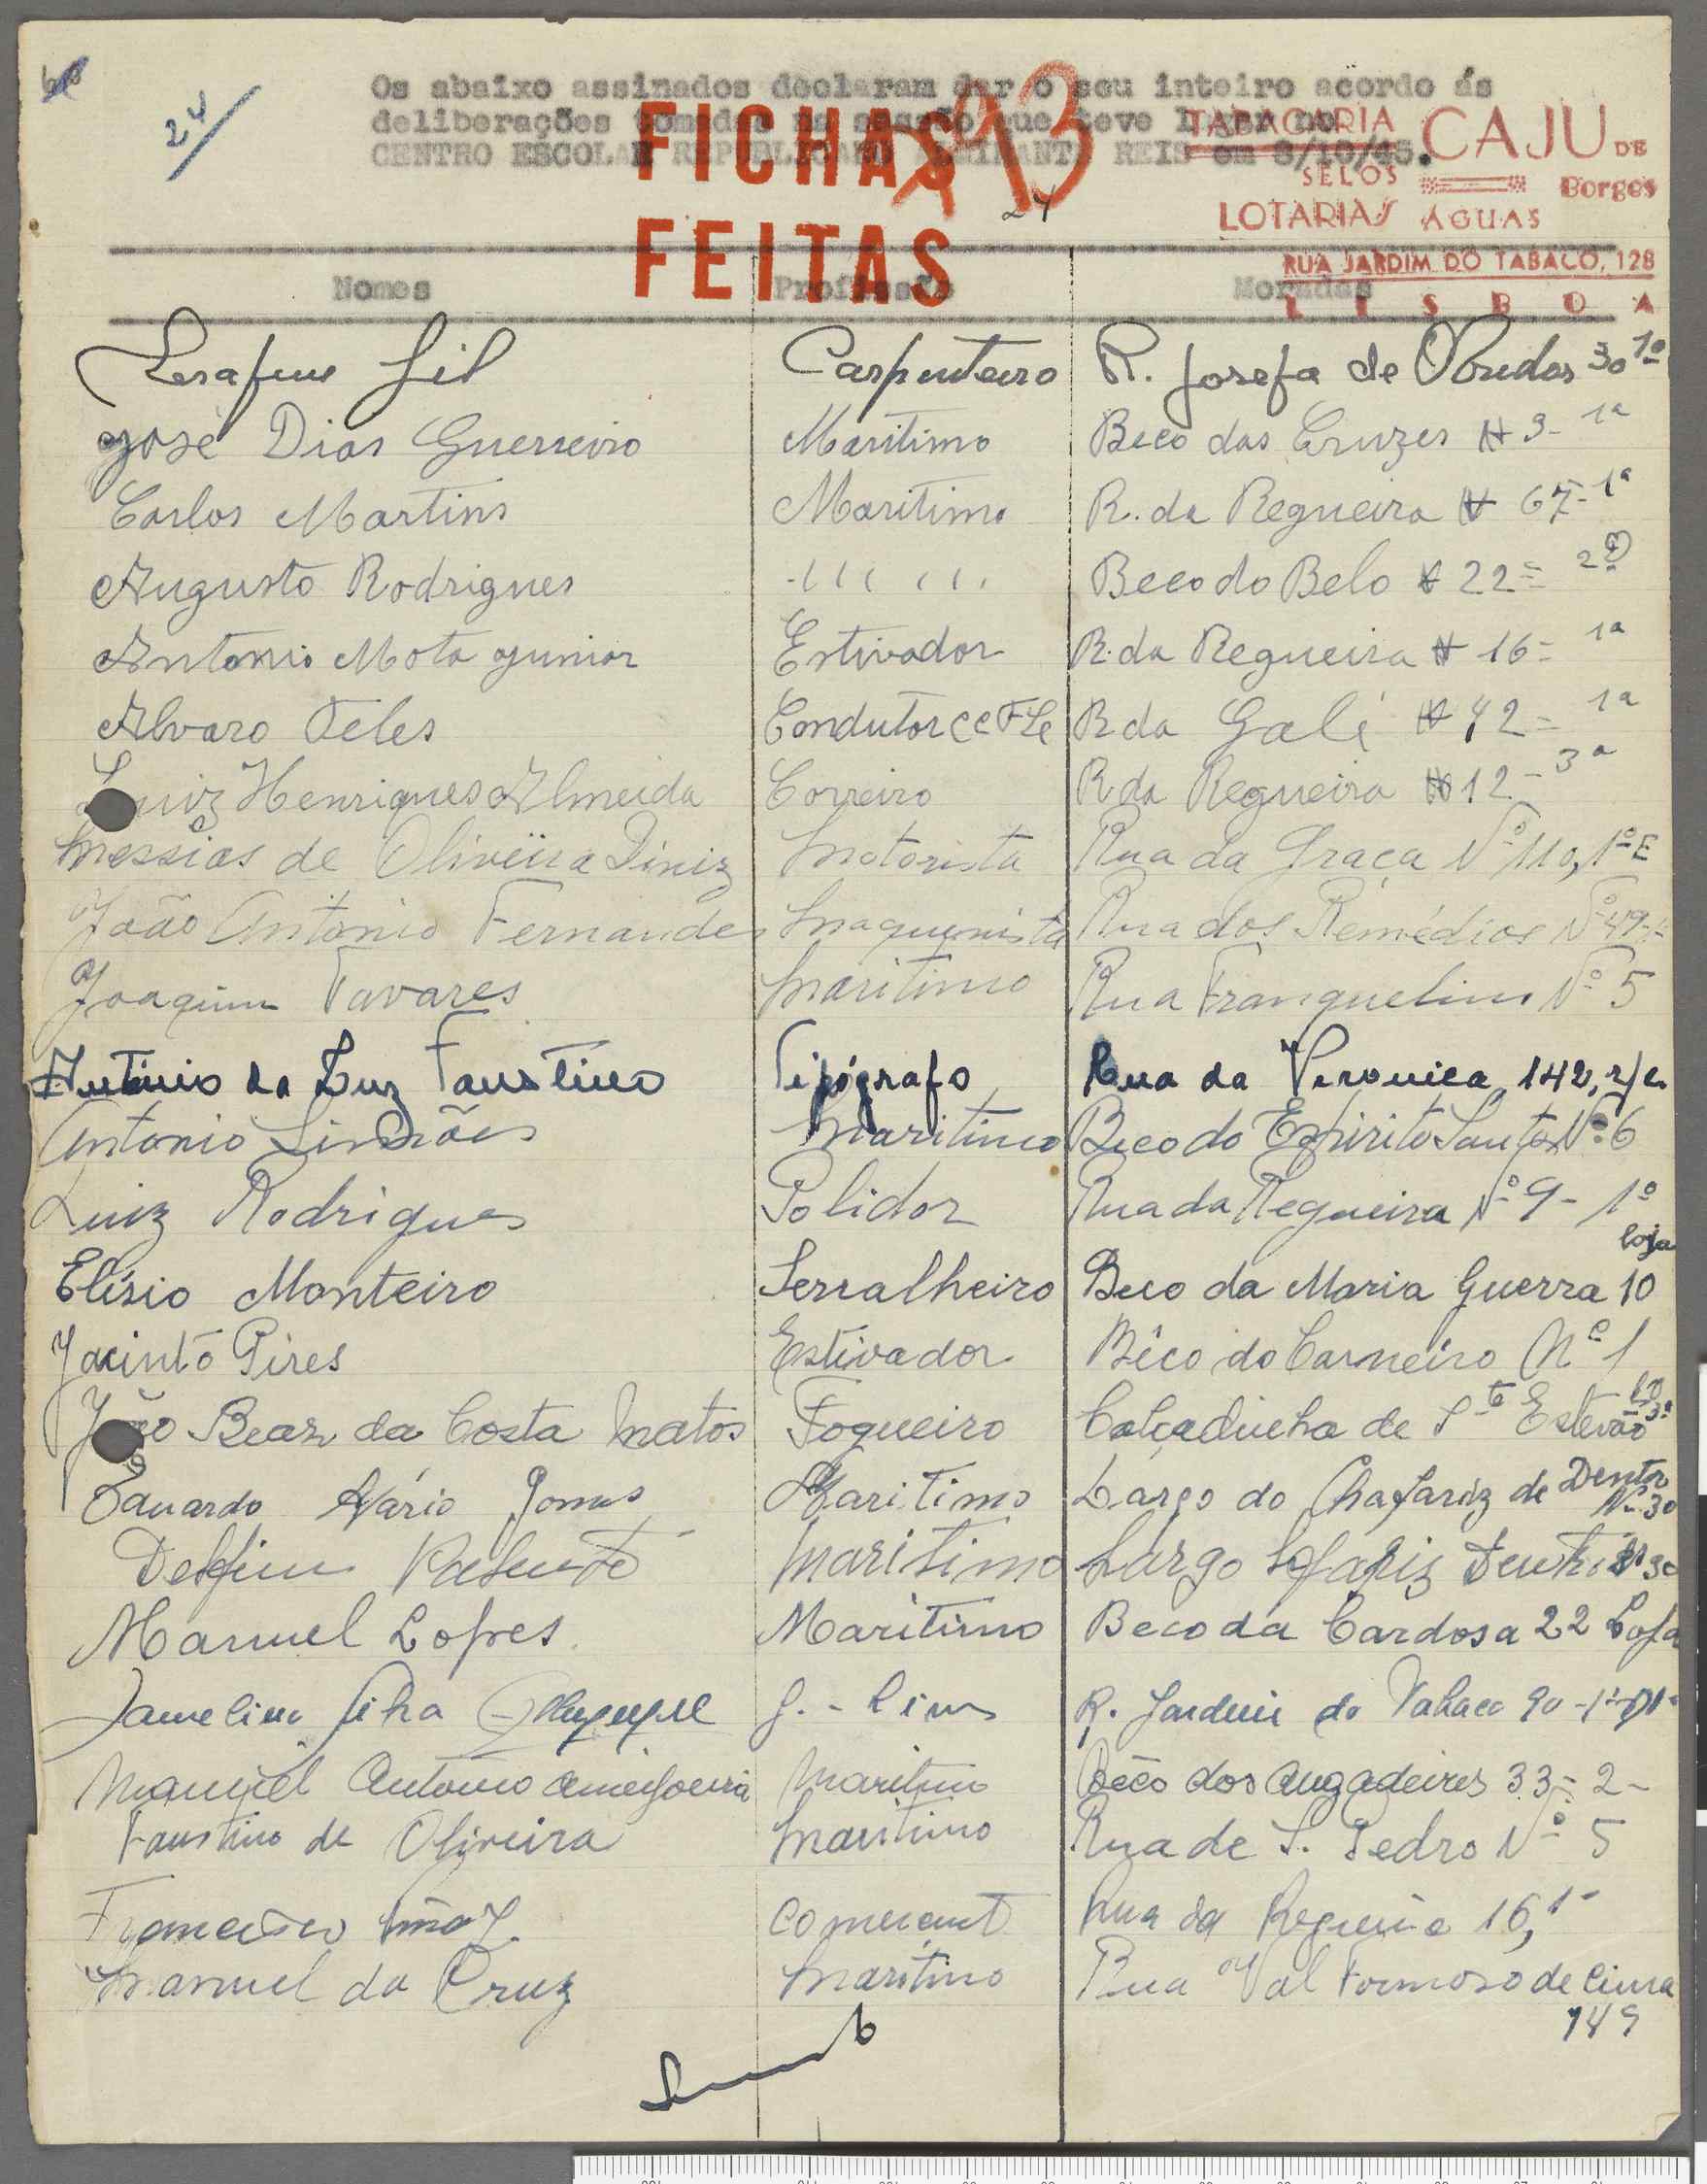 24
Os abaixo assinados declaram dar o seu inteiro acordo ás
deliberações tomadas na sessão que teve lugar no
CENTRO ESCOLAR REPUBLICANO ALMIRANTE REIS em 8/10/45.
FICHAS
FEITAS
93
24
TABACARIA CAJU DE
SELOS Borges
LOTARIAS AGUAS
RUA JARDIM DO TABACO, 128
LISBOA
Nomes Profissão Moradas
Serafim Gil Carpinteiro R. Josefa de Obidos 30 1º
José Dias Guerreiro Maritimo Beco das Cruzes N 9- 1ª
Carlos Martins Maritimo R. da Regueira N 67- 1ª
Augusto Rodrigues ,,, ,,, Beco do Belo N 22= 2º
Antonio Mota Junior Estivador R. da Regueira N 16= 1ª
Alvaro Teles Condutor CCFLe R da Galé N 42= 1ª
Luiz Henriques Almeida Correiro R. da Regueira N 12- 3ª
Messias de Oliveira Diniz Motorista Rua da Graça Nº 110, 1º E
João Antonio Fernandes Maquenista Rua dos Remédios Nº 49
Joaquim Tavares Maritimo Rua Franquelim Nº 5
António da Luz Faustino Tipógrafo Rua da Veronica, 142, r/c
Antonio Simões Maritimo Beco do Espirito Santo Nº 6
Luiz Rodrigues Polidor Rua da Regueira Nº 9- 1º
Elísio Monteiro Serralheiro Beco da Maria Guerra 10 loja
Jacinto Pires Estivador Bêco do Carneiro Nº 1
João da Costa Matos Fogueiro Calçadinha de Sto Estevão
Eduardo Mário Gomes Maritimo Largo do Chafariz de Dentro Nº 30
Delfim Maritimo Largo Dentro 30
Manuel Lopes Maritimo Beco da Cardosa 22 Loja
Silva R. Jardim do Tabaco 90
Manuel Antonio Ameijoeira Maritimo Bêco dos 33= 2-
Faustino de Oliveira Maritimo Rua de S. Pedro Nº 5
Francisco Comerciant Rua da Regueira 16, 1º
Manuel da Cruz Maritimo Rua Val Formoso de Cima
149